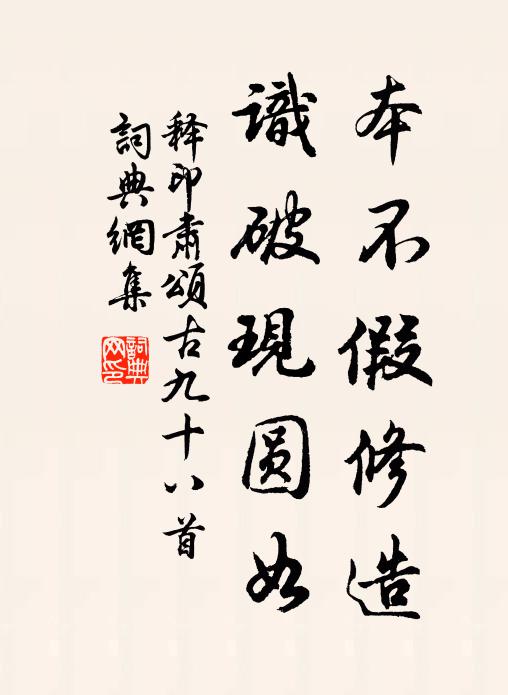 本不假修造
識破現圆如
释印肅頌古九十八首
詞典網集
詞典网印